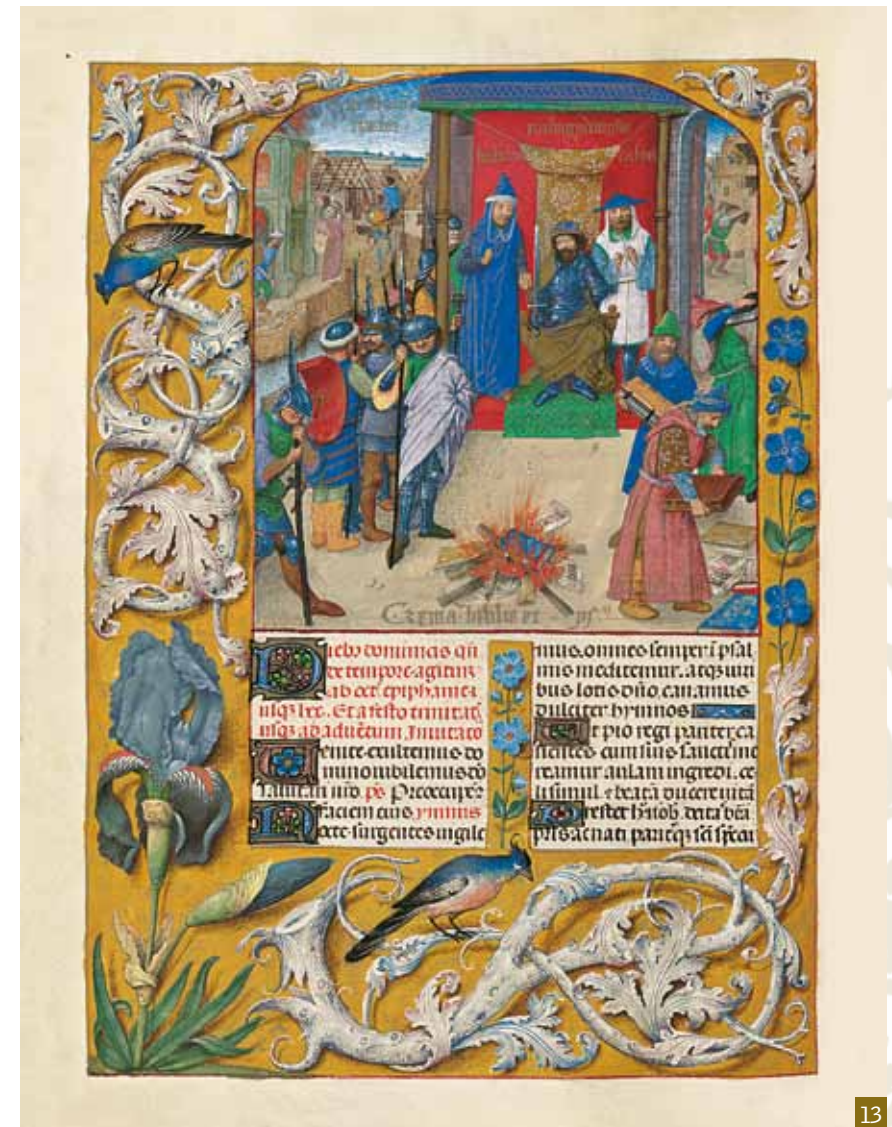 Diebus dominicis qñ
de tempore agitur
ab oct. epiphanie
usqȝ lxx. Et a festo trinitatꝭ
usqȝ ad adventum Invitato
Venite exultemus do
mino iubilemus
salutari nr̃o. ps Preoccupem᷒
faciem eius ymnus
Nocte surgentes vigile
mus. omnes semper ĩ psal
mis meditemur. atqȝ viri
bus totis dño. canamus
dulciter hymnos
Ut pio regi pariter ca
nentes. cum suis sanctis me
reamur aulam ingredi. ce
li simul et beatã ducere vitã
Prestet h̃ nob̃. deitas bẽa
pris ac nati pariterqȝ sc̃i
13